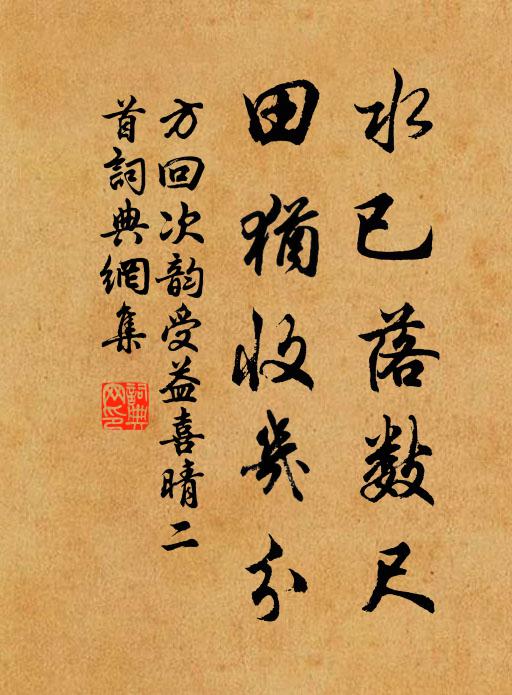 水已落數尺
田猶收幾分
方回次韵受益喜晴二
首詞典網集
詞典
网印